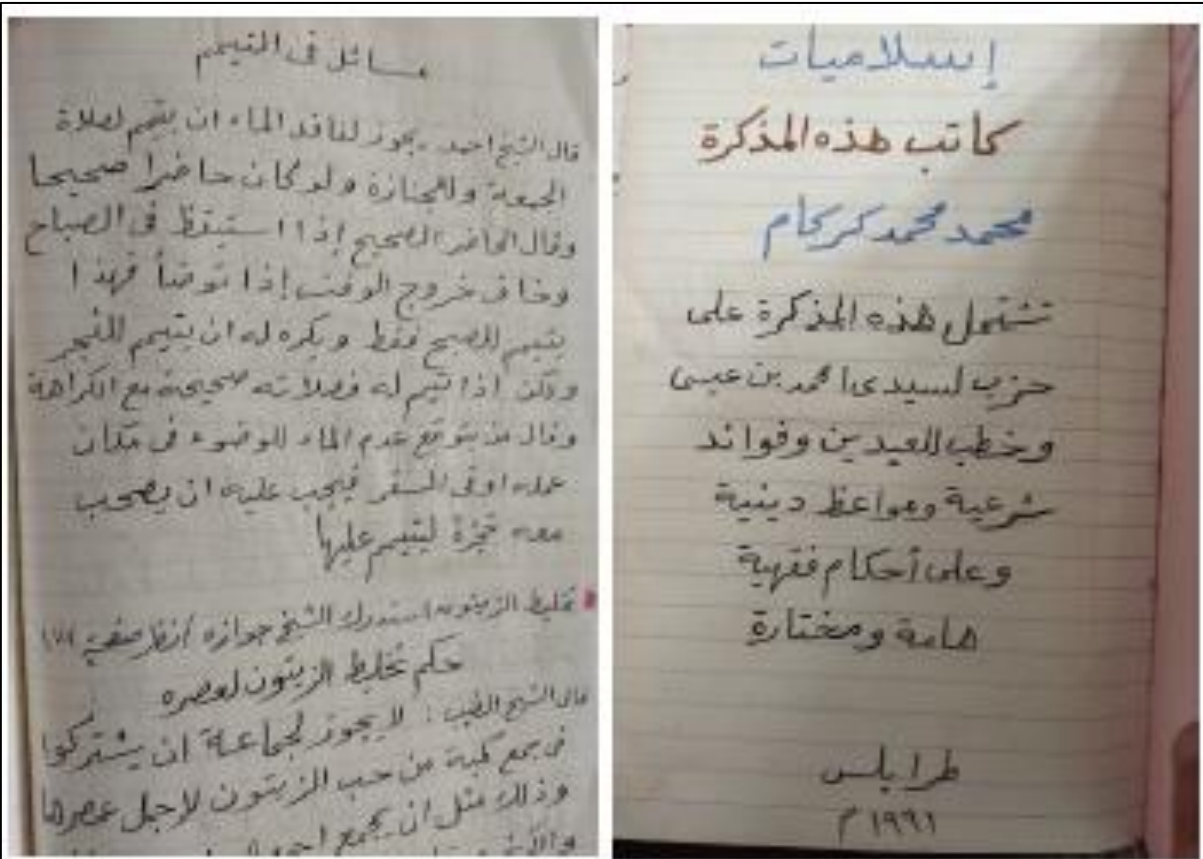 إسلاميات
كاتب هذه المذكرة
محمد محمد كركام
تشتمل هذه المذكرة على
حزب لسيدى امحمد بن عيسى
وخطب للعيدين وفوائد
شرعية ومواعظ دينية
وعلى أحكام فقهية
هامة ومختارة
طرابلس
١٩٩١ م
مسائل فى التيمم
قال الشيخ احمد . يجوز لفاقد الماء ان يتيمم لصلاة
الجمعة وللجنازة ولو كان حاضرا صحيحا
وقال الحاضر الصحيح إذا استيقظ فى الصباح
وخاف خروج الوقت إذا توضأ فهذا
يتيمم للصبح فقط ويكره له ان يتيمم للفجر
ولكن اذا تيمم له فصلاته صحيحة مع الكراهة
وقال من يتوقع عدم الماء للوضوء فى مكان
عمله او فى السفر فيجب عليه ان يصحب
معه ليتيمم عليها
تخليط الزيتون استدرك الشيخ جوازه انظر صفحة
حكم تخليط الزيتون لعصره
قال الشيخ الطيب : لا يجوز لجماعة ان يشتركوا
فى جمع كمية من حب الزيتون لاجل عصرها
وذلك مثل ان يجمع